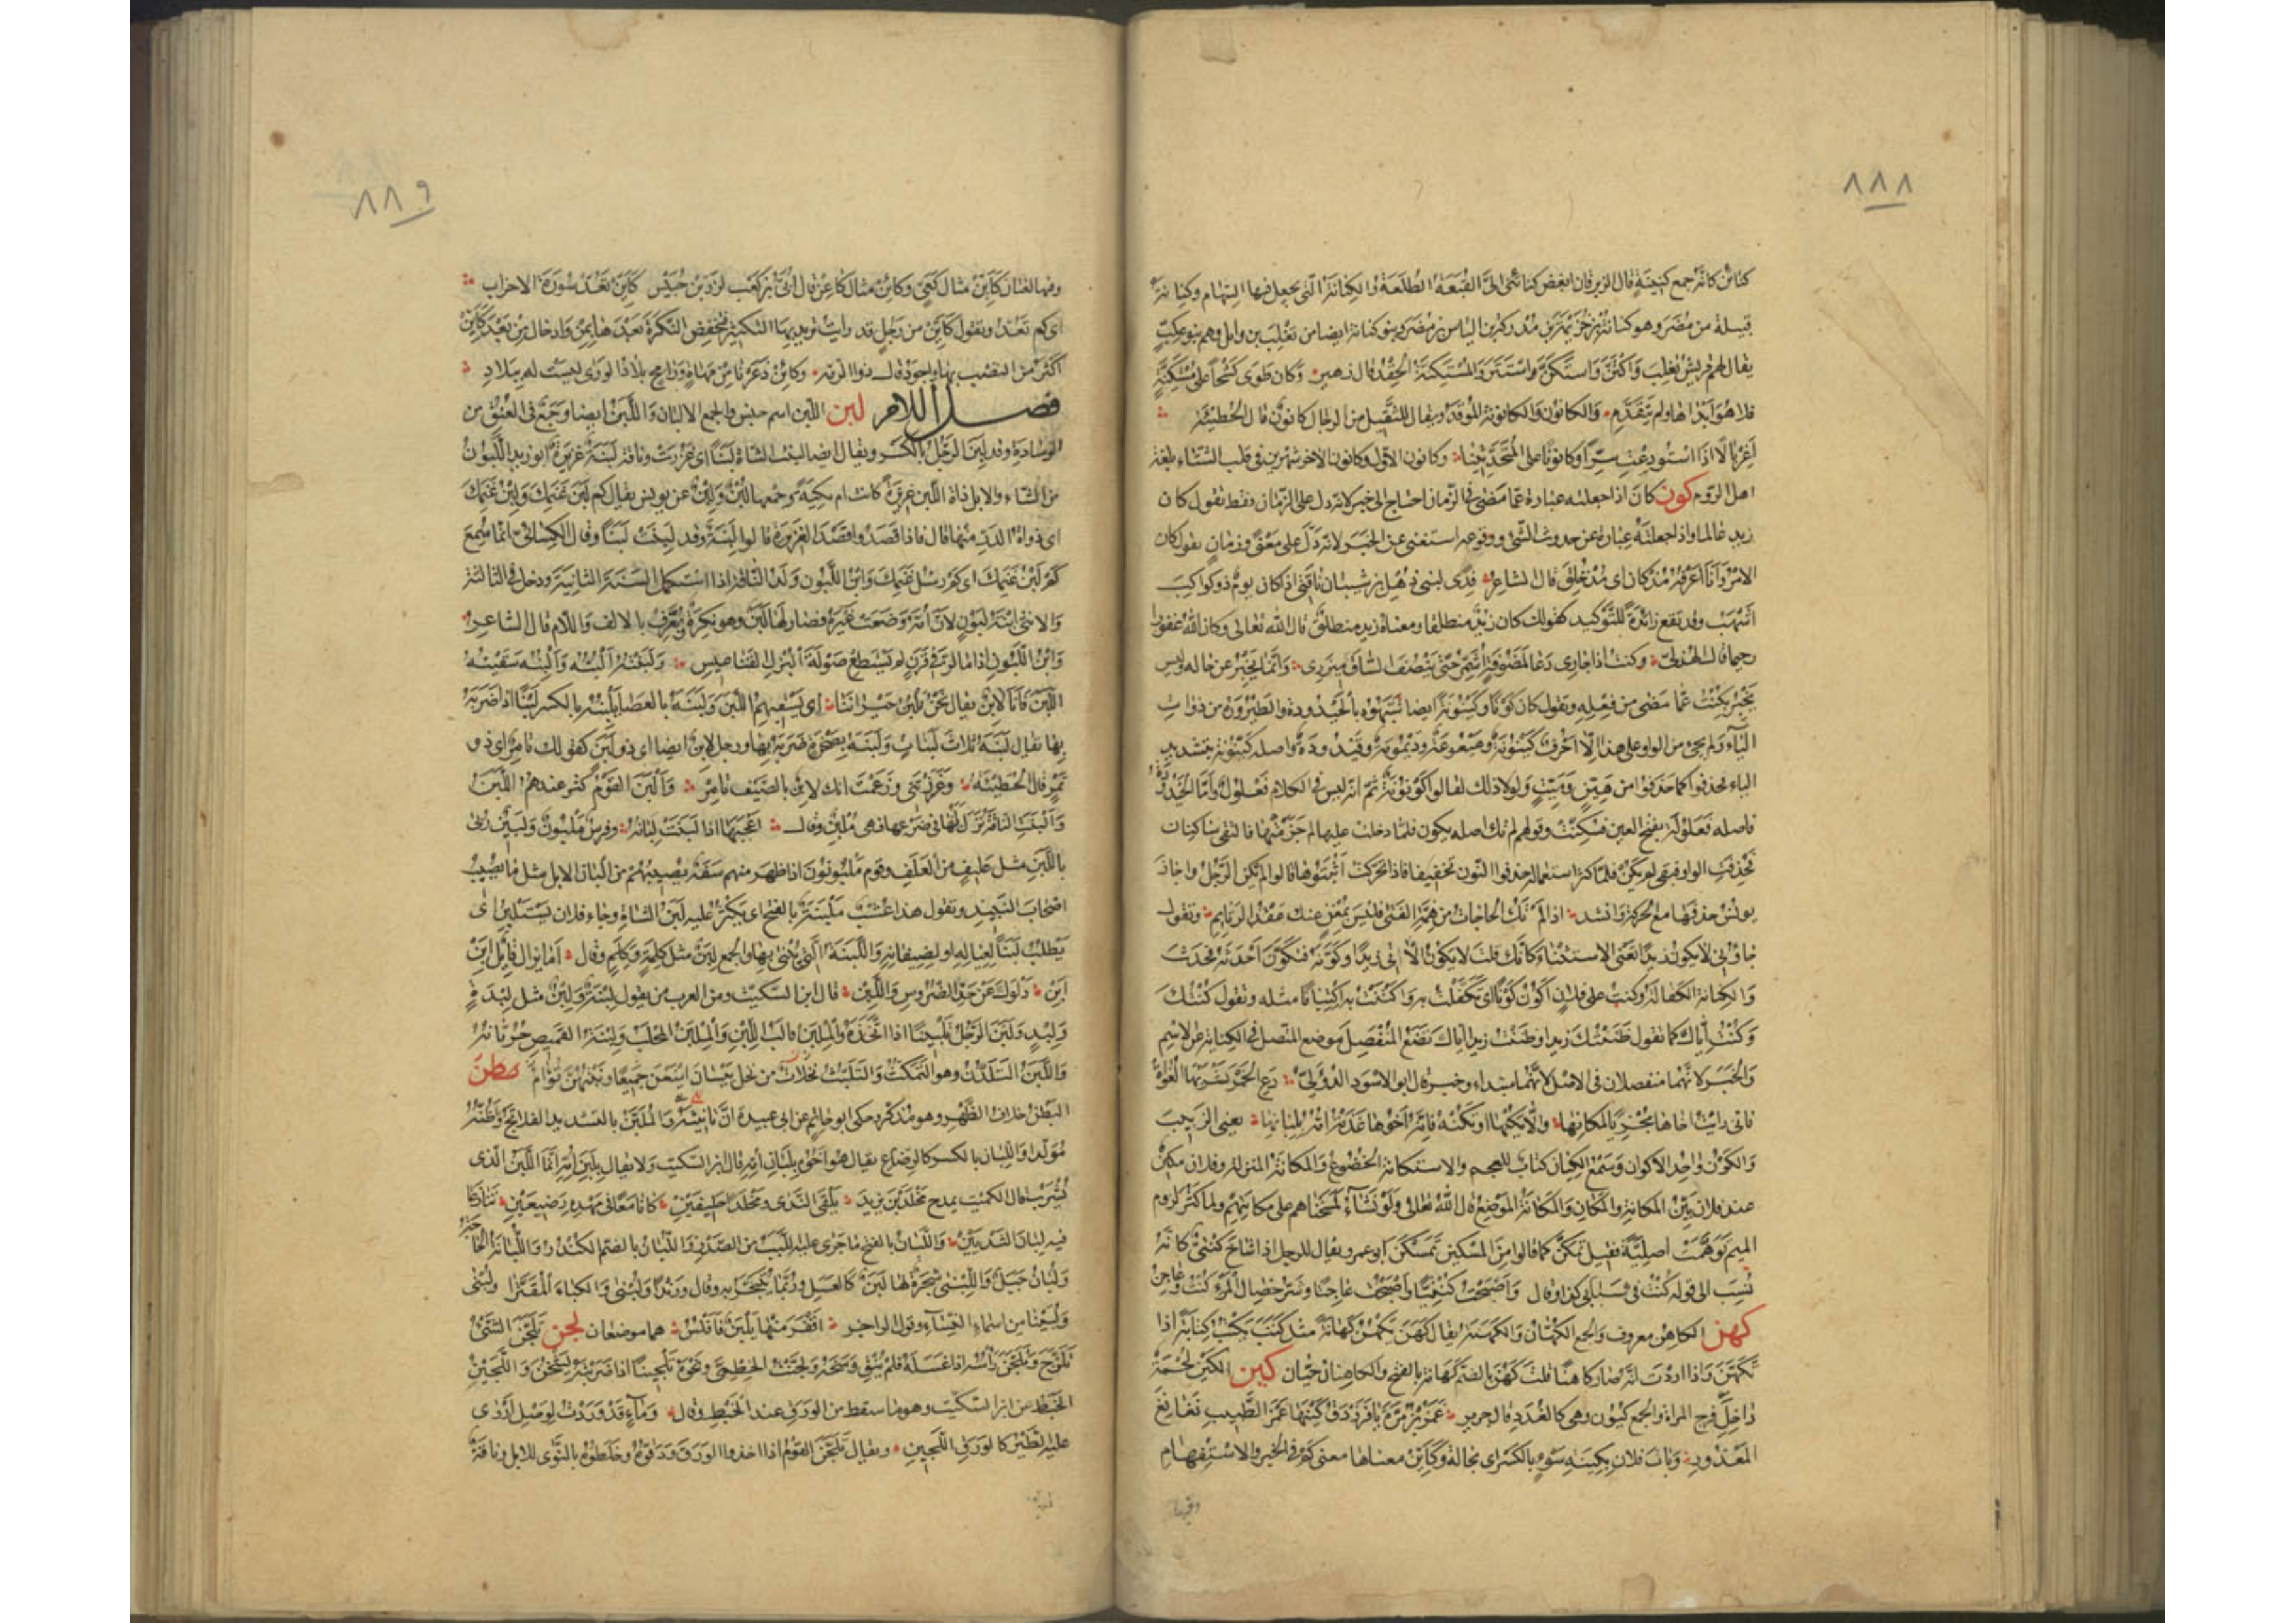 ٨٨٨
كنائن كانه جمع كنينة قال الزبرقان ابغض كنائنى الىّ القبعة الطلعة والكنانة التى يجعل فيها السهام وكنانة
قبيلة من مضر وهو كنانة بن خزيمة بن مدركة بن الياس بن مضر وبنو كنانة ايضا من تغلب بن وائل وهم بنو عكب
يقال لهم قريش تغلب واكتن واستكن واستتر والمستكنة الحقد قال زهير وكان طوى كشحا على مستكنة
فلا هو ابداها ولم يتقدم والكانون والكانونة الموقد ويقال للثقيل من الرجال كانون قال الحطيئة
اغربالا اذا استودعت سرا وكانونا على المتحدثينا وكانون الاول وكانون الاخر شهرين فى قلب الشتاء بلغة
اهل الروم كون كان اذا جعلته عبارة عما مضى فى الزمان احتاج الى خبر لانه دل على الزمان فقط تقول كان
زيد عالما واذا جعلته عبارة عن حدوث الشئ ووقوعه استغنى عن الخبر لانه دل على معنى وزمان تقول كان
الامر وانا اعرفه مذ كان اى مذ خلق قال الشاعر فدى لبنى ذهل بن شيبان ناقتى اذا كان يوم ذو كواكب
اشهب وقد تقع زائدة للتوكيد كقولك كان زيد منطلقا ومعناه زيد منطلق قال الله تعالى وكان الله غفورا
رحيما قال الهذلى وكنت اذا جارى دعا لمضوفة اشمر حتى ينصف الساق ميزرى وانما يخبر عن حاله وليس
يخبر بكنت عما مضى من فعله وتقول كان كونا وكينونة ايضا شبهوه بالحيدودة والطيرورة من ذوات
الياء ولم يجئ من الواو على هذا الا احرف كينونة وهيعوعة وديمومة وقيدودة واصله كينونة بتشديد
الياء فحذفوا كما حذفوا من هين وميت ولولا ذلك لقالوا كونونة ثم انه ليس فى الكلام فعلول واما الحيدودة
فاصله فعلولة بفتح العين فسكنت وقولهم لم تك اصله يكون فلما دخلت عليها لم جزمتها فالتقى ساكنان
فحذفت الواو فبقى لم يكن فلما كثر استعماله حذفوا النون تخفيفا فاذا تحركت اثبتوها قالوا لم يكن الرجل واجاز
يونس حذفها مع الحركة وانشد اذا لم تك الحاجات من همة الفتى فليس بمغن عنك عقد الرتايم وتقول
جاؤنى لا يكون زيدا تعنى الاستثناء كانك قلت لا يكون الآتى زيدا وكونه فتكون احدثه فحدث
والكيانة الكفالة وكنت على فلان اكون كونا اى تكفلت به واكتنت به اكتيانا مثله وتقول كنتك
وكنت اياك كما تقول ظننتك زيدا وظننت زيدا اياك تضع المنفصل موضع المتصل فى الكناية عن الاسم
والخبر لانهما منفصلان فى الاصل لانهما مبتداء وخبر قال ابو الاسود الدؤلى دع الخمر يشربها الغواة
فانى رايت اخاها مجزيا لمكانها والا يكنها او تكنه فانه اخوها غذته امه بلبانها يعنى الزبيب
والكون واحد الاكوان وسمع الكيان كتاب للعجم والاستكانة الخضوع والمكانة المنزلة وفلان مكين
عند فلان بين المكانة والمكان والمكانة الموضع قال الله تعالى ولو نشاء لمسخناهم على مكانتهم ولما كثر لزوم
الميم توهمت اصلية فقيل تمكن كما قالوا من المسكين تمسكن ابو عمرو يقال للرجل اذا شاخ كنتى كانه
نسب الى قوله كنت فى شبابى كذا وقال واصبحت كنتيا واصبحت عاجنا وشر خصال المرء كنت وعاجن
كهن الكاهن معروف والجمع الكهان والكهنة يقال كهن يكهن كهانة مثل كتب يكتب كتابة اذا
تكهن واذا اردت انه صار كاهنا قلت كهن بالضم كهانة بالفتح والكاهنان حيان كين الكين لحمة
داخل فرج المراة والجمع كيون وهى كالغدد قال جرير غمز بن مرة يا فرزدق كينها غمز الطبيب نغانغ
المعذور وبات فلان بكينة سوء بالكسر اى بحالة وكاين معناها معنى كم فى الخبر والاستفهام
وفيها
٨٨٩
وفيها لغتان كاين مثال كعى وكائن مثال كاعن قال ابى بن كعب لزر بن حبيش كاين تعد سورة الاحزاب
اى كم تعد وتقول كاين من رجل قد رايت تريد بها التكثير فتخفض النكرة بعدها بمن وادخال من بعد كاين
اكثر من النصب بها واجود قال ذو الرمة وكائن ذعرنا من مهاة ورامح بلاد الورى ليست له ببلاد
فصل اللام لبن اللبن اسم جنس والجمع الالبان واللبن ايضا وجع فى العنق من
الوسادة وقد لبن الرجل بالكسر ويقال ايضا لبنت الشاة لبنا اى غزرت وناقة لبنة غزيرة ابو زيد اللبون
من الشاء والابل ذات اللبن غزيرة كانت ام بكية وجمعها لبن ولبن عن يونس يقال كم لبن غنمك ولبن غنمك
اى ذوات الدر منها قال فاذا قصدوا قصد الغزيرة قالوا لبنة وقد لبنت لبنا وقال الكسائى انما سمع
كم لبن غنمك اى كم رسل غنمك وابن اللبون ولد الناقة اذا استكمل السنة الثانية ودخل فى الثالثة
والانثى ابنة لبون لان امه وضعت غيره فصار لها لبن وهو نكرة ويعرف بالالف واللام قال الشاعر
وابن اللبون اذا ما لز فى قرن لم يستطع صولة البزل القناعيس ولبنته البنه والبنه سقيته
اللبن فانا لابن يقال نحن نلبن جيراننا اى نسقيهم اللبن ولبنه بالعصا يلبنه بالكسر لبنا اذا ضربه
بها يقال لبنه ثلاث لبنات ولبنه بصخرة ضربه بها ورجل لابن ايضا اى ذو لبن كقولك تامر اى ذو
تمر قال الحطيئة وغررتنى وزعمت انك لابن بالصيف تامر والبن القوم كثر عندهم اللبن
والبنت الناقة نزل لبنها فى ضرعها فهى ملبن وقال اعجبها اذا لبنت لبانه وفرس ملبون ولبين ربى
باللبن مثل عليف من العلف وقوم ملبونون اذا ظهر منهم سفه يصيبهم من البان الابل مثل ما يصيب
اصحاب النبيذ وتقول هذا عشب ملبنة بالفتح اى يكثر عليه لبن الشاة وجاء فلان يستلبن اى
يطلب لبنا لعياله او لضيفانه واللبنة التى يبنى بها والجمع لبن مثل كلمة وكلم وقال اما يزال قايل ابن
ابن دلوك عن حد الضروس واللبن قال ابن السكيت ومن العرب من يقول لبنة ولبن مثل لبدة
ولبد ولبن الرجل تلبينا اذا اتخذه والملبن قالب اللبن والملبن المحلب ولبنة القميص جربانه
والتلبن التلدن وهو التمكث والتلبث نخلات من نخل بيسان اينعن جميعا ونبتهن تؤام بطن
البطن خلاف الظهر وهو مذكر وحكى ابو حاتم عن ابى عبيدة ان تانيثه والملبن بالتشديد الفلاتج واظنه
مولدا واللبان بالكسر كالرضاع يقال هو اخوه بلبان امه قال ابن السكيت ولا يقال بلبن امه انما اللبن الذى
يشرب قال الكميت يمدح مخلد بن يزيد يلقى الندى ومخلدا حليفين كانا معا فى مهده رضيعين تنازعا
فيه لبان الثديين واللبان بالفتح ما جرى عليه اللبب من الصدر واللبان بالضم الكندر واللبانة الحاجة
ولبنان جبل واللبنى شجرة لها لبن كالعسل وربما يتبخر به وقال ورندا ولبنى والكباء المقترا ولبنى
ولبينا من اسماء النساء وقول الراجز اقفر منها يلبن فافلس هما موضعان لجن تلجن الشئ
تلزج وتلجن راسه اذا غسله فلم ينق وسخه ولجنت الخطمى ونحوه تلجينا اذا ضربته ليثخن واللجين
الخبط عن ابن السكيت وهو ما سقط من الورق عند الخبط وقال وماء قد وردت لوصل اروى
عليه الطير كالورق اللجين ويقال تلجن القوم اذا اخذوا الورق ودقوه وخلطوه بالنوى للابل وناقة